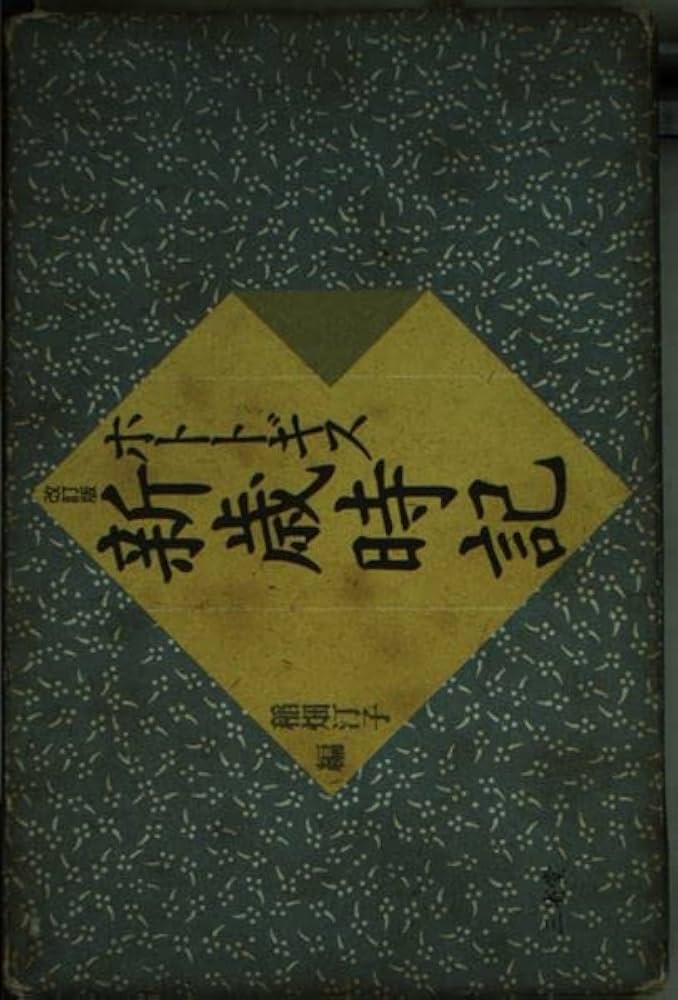 改訂版
ホトトギス
新歳時記
稲畑汀子
編
三省堂